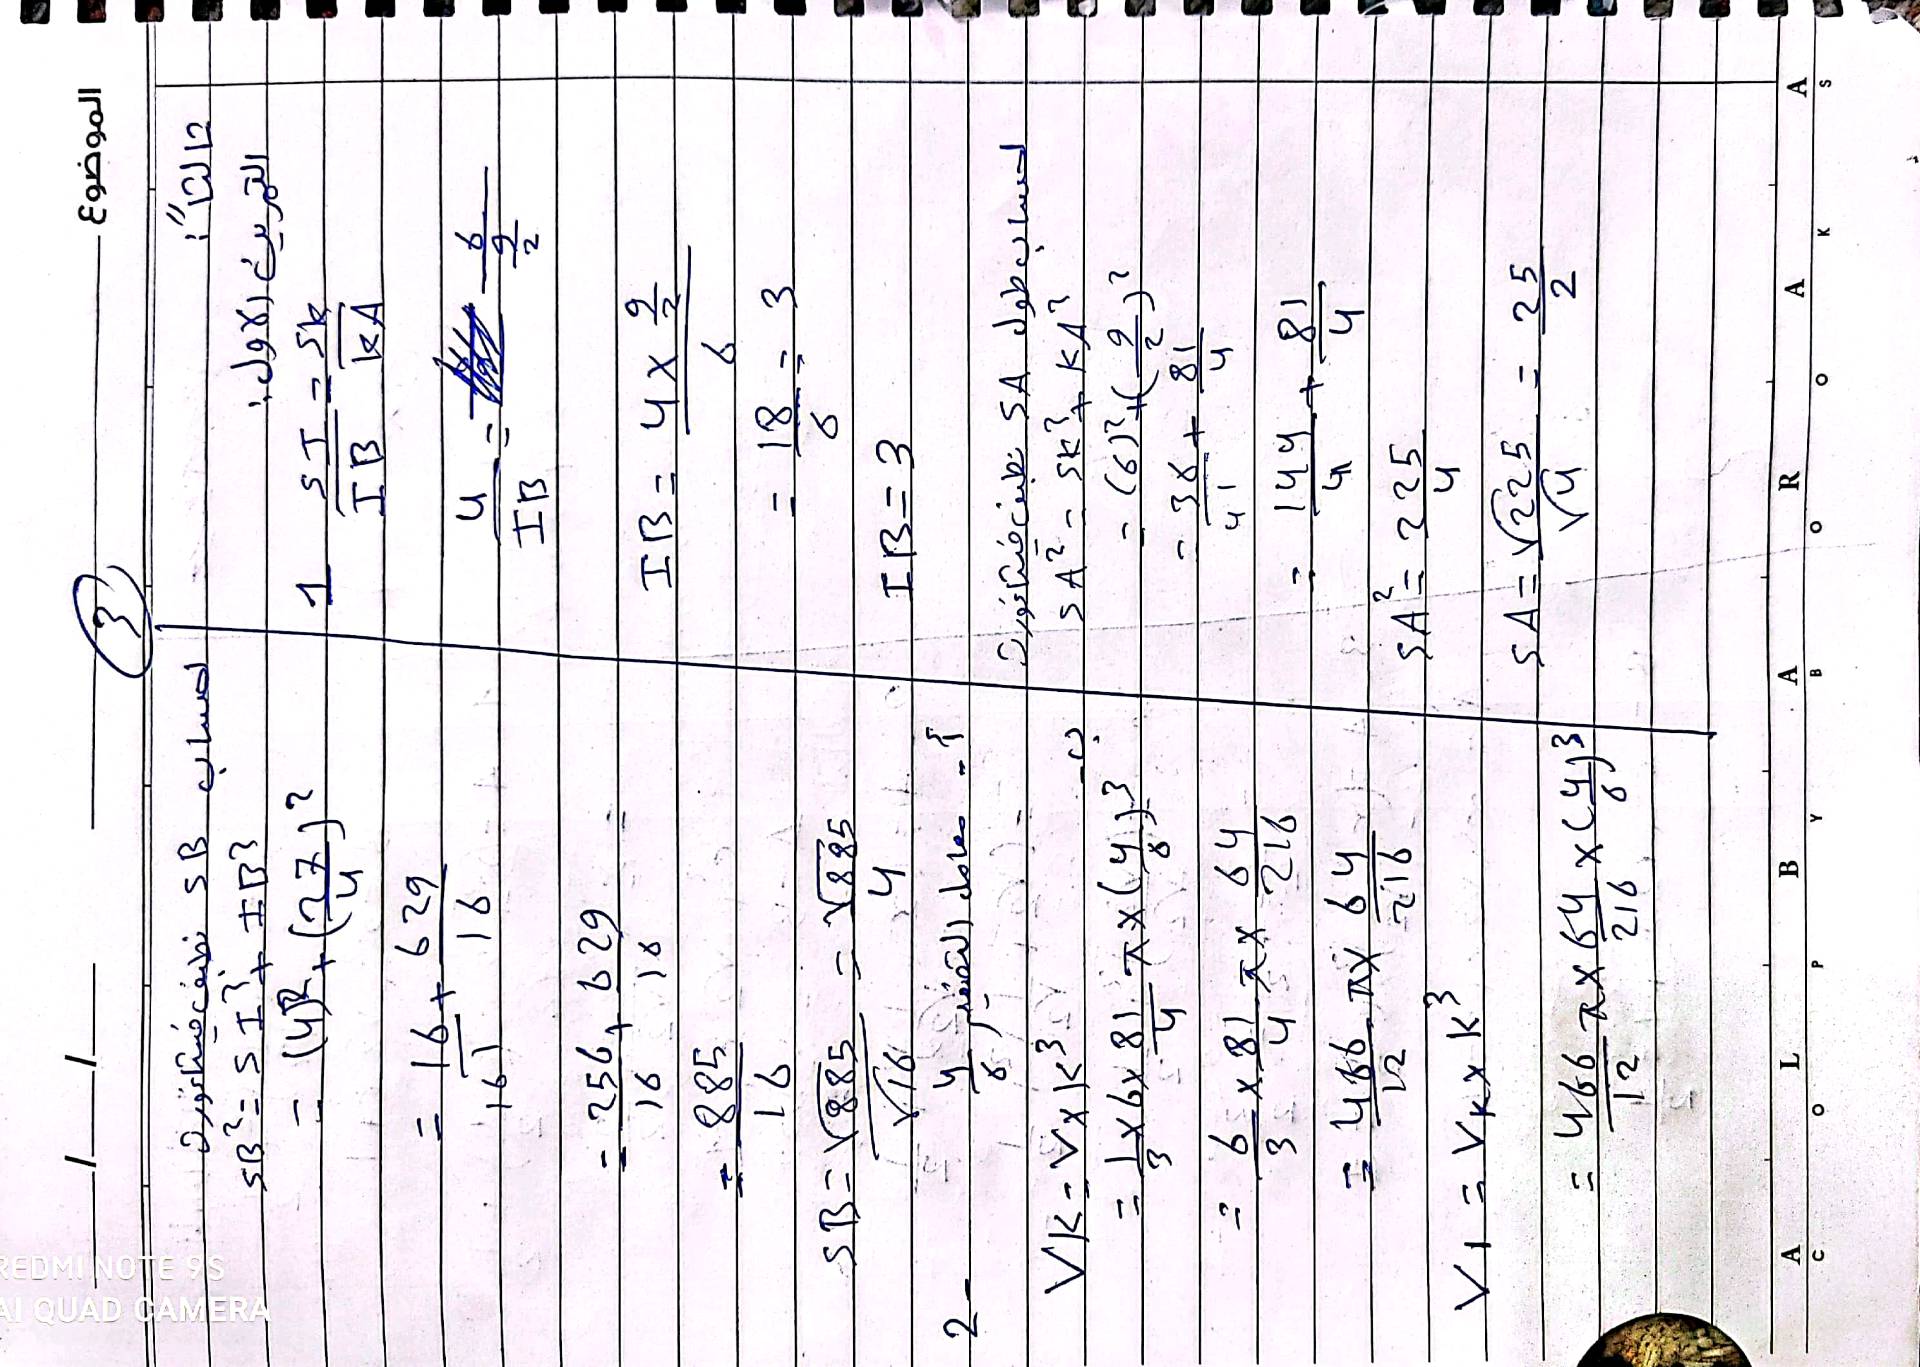 الموضوع
3
ثالثاً:
التمرين الاول:
1 SI/IB = SK/KA
4/IB = 6/(9/2)
IB = (4 × 9/2)/6
= 18/6 = 3
IB = 3
لحساب طول SA حسب فيثاغورث
SA² = SK² + KA²
= (6)² + (9/2)²
= 36/1 + 81/4
4
= 144/4 + 81/4
SA² = 225/4
SA = √225/√4 = 25/2
لحساب SB حسب فيثاغورث
SB² = SI² + IB²
= (4)² + (27/4)²
= 16/1 + 629/16
16
= 256/16 + 629/16 =
= 885/16
SB = √885/√16 = √885/4
2- أ- معامل التصغير 4/6
ب- VK = V × K³
= 1/3 × 6 × 81/4 π × (4/6)³
= 6/3 × 81/4 π × 64/216
= 466/12 π × 64/216
V1 = VK × K³
= 466/12 π × 64/216 × (4/6)³
ALPBYBAROAKAS
REDMI NOTE 9S
AI QUAD CAMERA